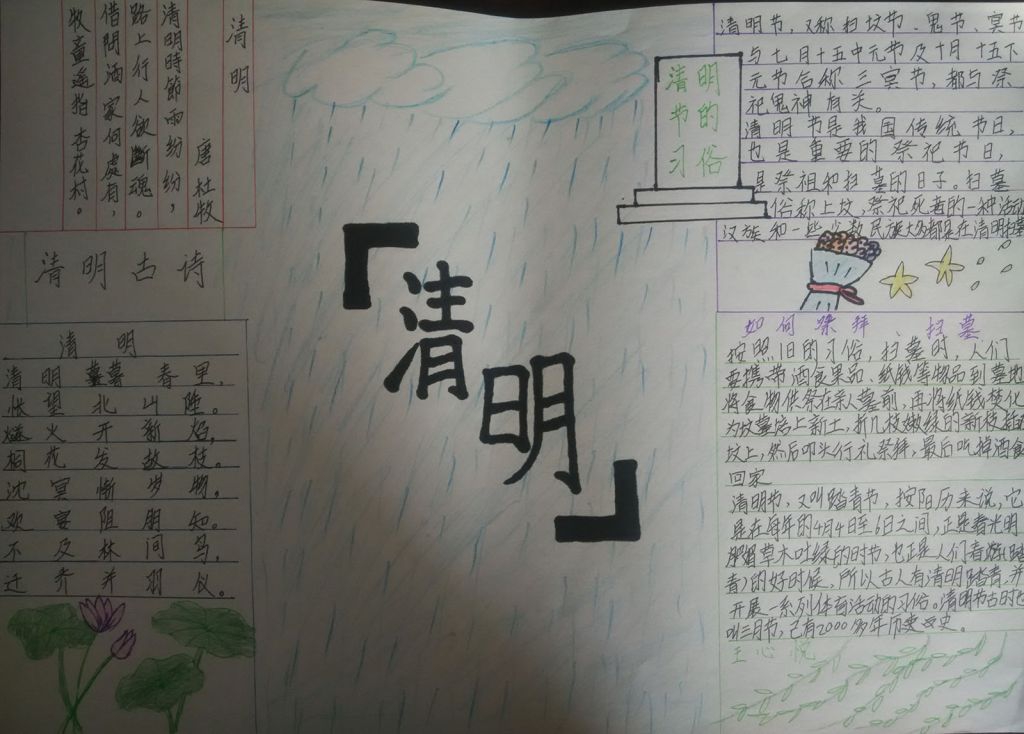 清明
唐 杜牧
清明時節雨紛紛，
路上行人欲斷魂。
借問酒家何處有，
牧童遥指杏花村。
清明古诗
清明
清明 春里，
怅望北山陲。
燧火开新焰，
桐花发故枝。
沈冥惭岁物，
欢宴阻朋知。
不及林间鸟，
迁乔并羽仪。
「清明」
清明
节的
习俗
清明节，又称扫坟节、鬼节、冥节
与七月十五中元节及十月十五下
元节合称三冥节，都与祭
祀鬼神有关。
清明节是我国传统节日，
也是重要的祭祀节日，
是祭祖和扫墓的日子。扫墓
俗称上坟，祭祀死者的一种活动
汉族和一些 数民族大多都是在清明扫墓
如何祭拜 扫墓
按照旧的习俗，扫墓时，人们
要携带酒食果品、纸钱等物品到墓地
将食物供祭在亲人墓前，再将纸钱焚化
为坟墓培上新土，折几枝嫩绿的新枝插在
坟上，然后叩头行礼祭拜，最后吃掉酒食
回家
清明节，又叫踏青节，按阳历来说，它
是在每年的4月4日至6日之间，正是春光明
媚草木吐绿的时节，也正是人们春游（踏
青）的好时候，所以古人有清明踏青，并
开展一系列体育活动的习俗。清明节古时也
叫三月节，已有2000多年历史。
王心悦